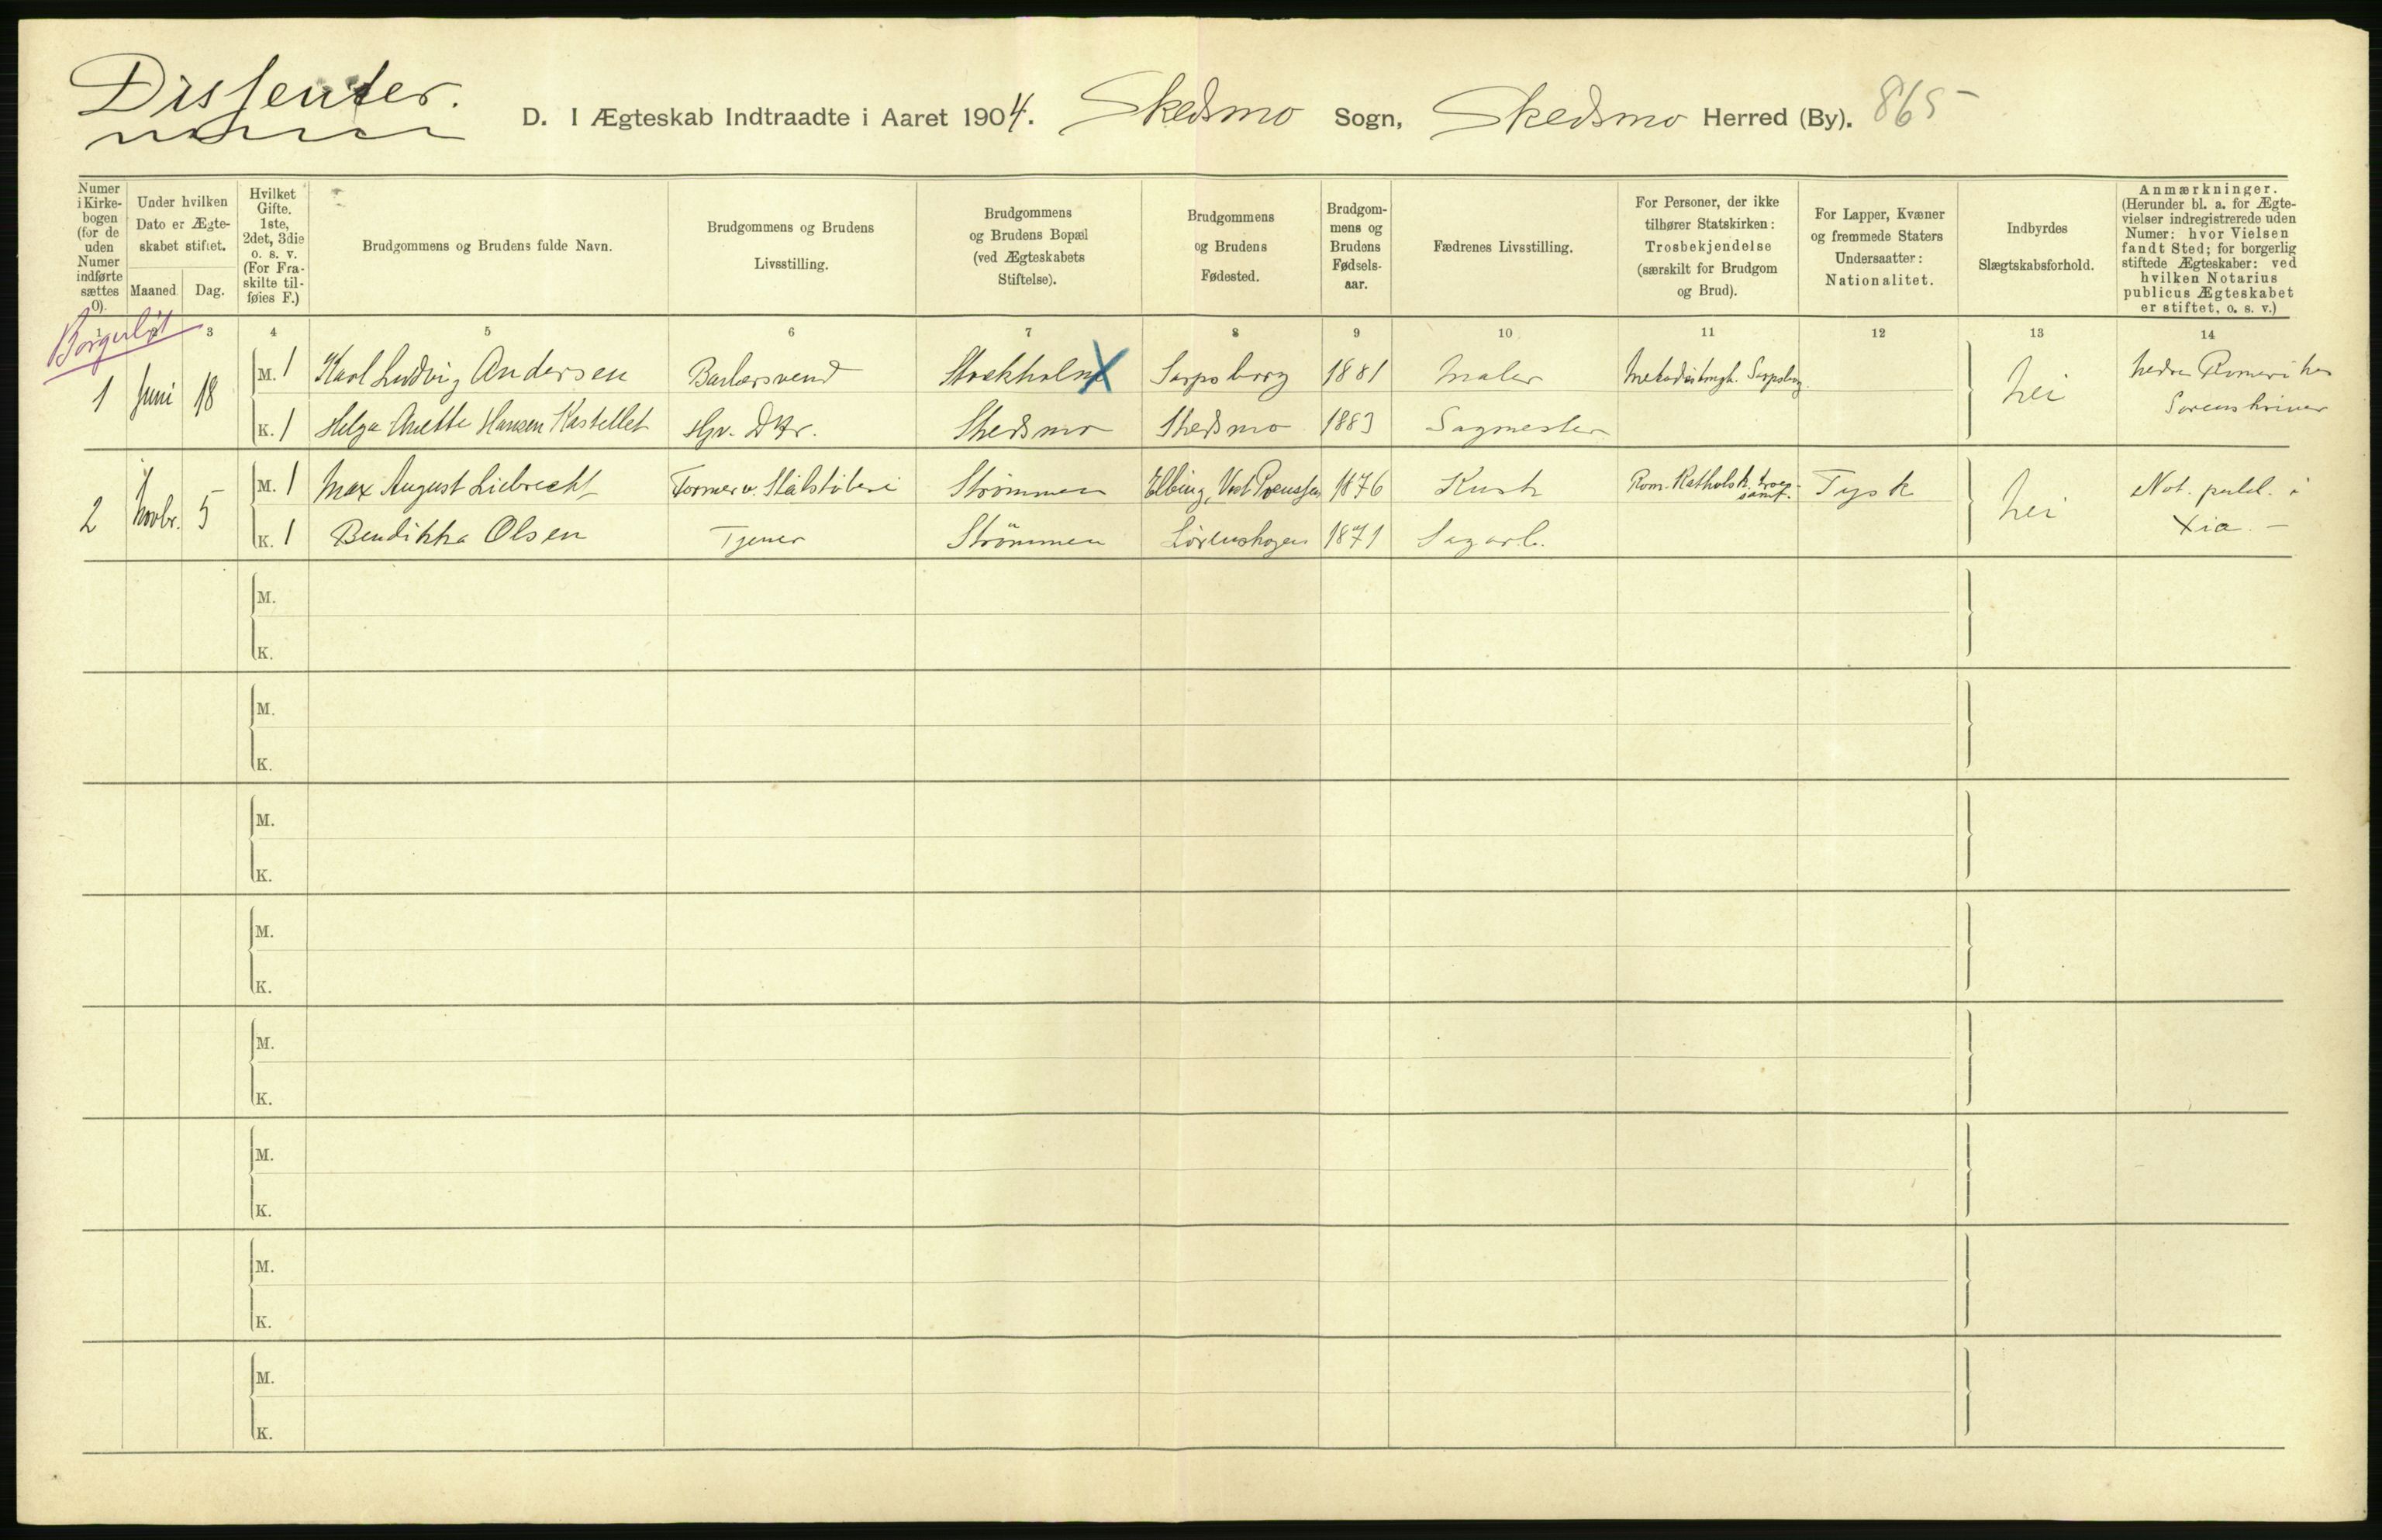 Dissenter.
D. I Ægteskab Indtraadte i Aaret 1904. Skedsmo Sogn, Skedsmo Herred (By). 865
Numer i Kirkebogen (for de uden Numer indførte sættes 0).
Under hvilken Dato er Ægteskabet stiftet.
Maaned. Dag.
Hvilket Gifte. 1ste, 2det, 3die o. s. v. (For Fraskilte tilføies F.)
Brudgommens og Brudens fulde Navn.
Brudgommens og Brudens Livsstilling.
Brudgommens og Brudens Bopæl (ved Ægteskabets Stiftelse).
Brudgommens og Brudens Fødested.
Brudgommens og Brudens Fødselsaar.
Fædrenes Livsstilling.
For Personer, der ikke tilhører Statskirken: Trosbekjendelse (særskilt for Brudgom og Brud).
For Lapper, Kvæner og fremmede Staters Undersaatter: Nationalitet.
Indbyrdes Slægtskabsforhold.
Anmærkninger. (Herunder bl. a. for Ægtevielser indregistrerede uden Numer: hvor Vielsen fandt Sted; for borgerlig stiftede Ægteskaber: ved hvilken Notarius publicus Ægteskabet er stiftet, o. s. v.)
1 2 3 4 5 6 7 8 9 10 11 12 13 14
Borgerligt
1 Juni 18 M. 1 Karl Ludvig Andersen Barbersvend Stockholm X Sarpsborg 1881 Maler Metodistmgh. Sarpsborg nei Nedre Romerike
K. 1 Helga Anette Hansen Kastellet Skedsmo Skedsmo 1883 Sagmester Sorenskriver
2 Novbr. 5 M. 1 Max August Liebrecht Former v. Stålstøberi Strømmen Elbing, Vest Preussen 1876 Kusk Rom. Katholsk troessamf. Tysk nei Not. publ. i
K. 1 Bendikka Olsen Tjener Strömmen Lörenskogen 1871 Sagarb. Xia. –
M.
K.
M.
K.
M.
K.
M.
K.
M.
K.
M.
K.
M.
K.
M.
K.